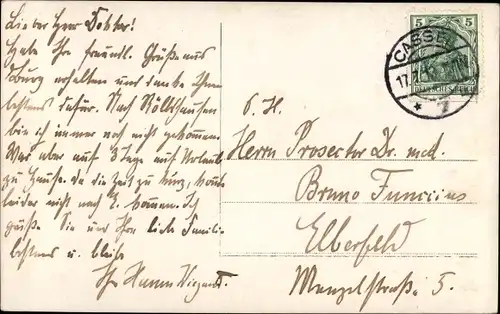 Lieber Herr Doktor!
Habe Ihre freundl. Grüße aus
Coburg erhalten und danke Ihnen
bestens dafür. Nach Röllshausen
bin ich immer noch nicht gekommen.
War aber auf 3 Tage auf Urlaub
zu Hause. da die Zeit zu kurz, konnte
leider nicht nach kommen. Ich
grüße Sie und Ihre liebe Familie
bestens u. bleibe
Ihr Wiegand.
5 5
DEUTSCHES REICH
CASSEL
17.
* 7
S. H.
Herrn Prosector Dr. med.
Bruno Funccius
Elberfeld
Menzelstraße 5.